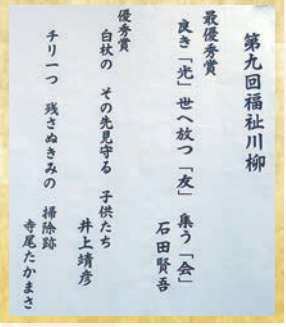 第九回福祉川柳
最優秀賞
良き「光」世へ放つ「友」 集う「会」
石田賢吾
優秀賞
白杖の その先見守る 子供たち
井上靖彦
チリ一つ 残さぬきみの 掃除跡
寺尾たかまさ